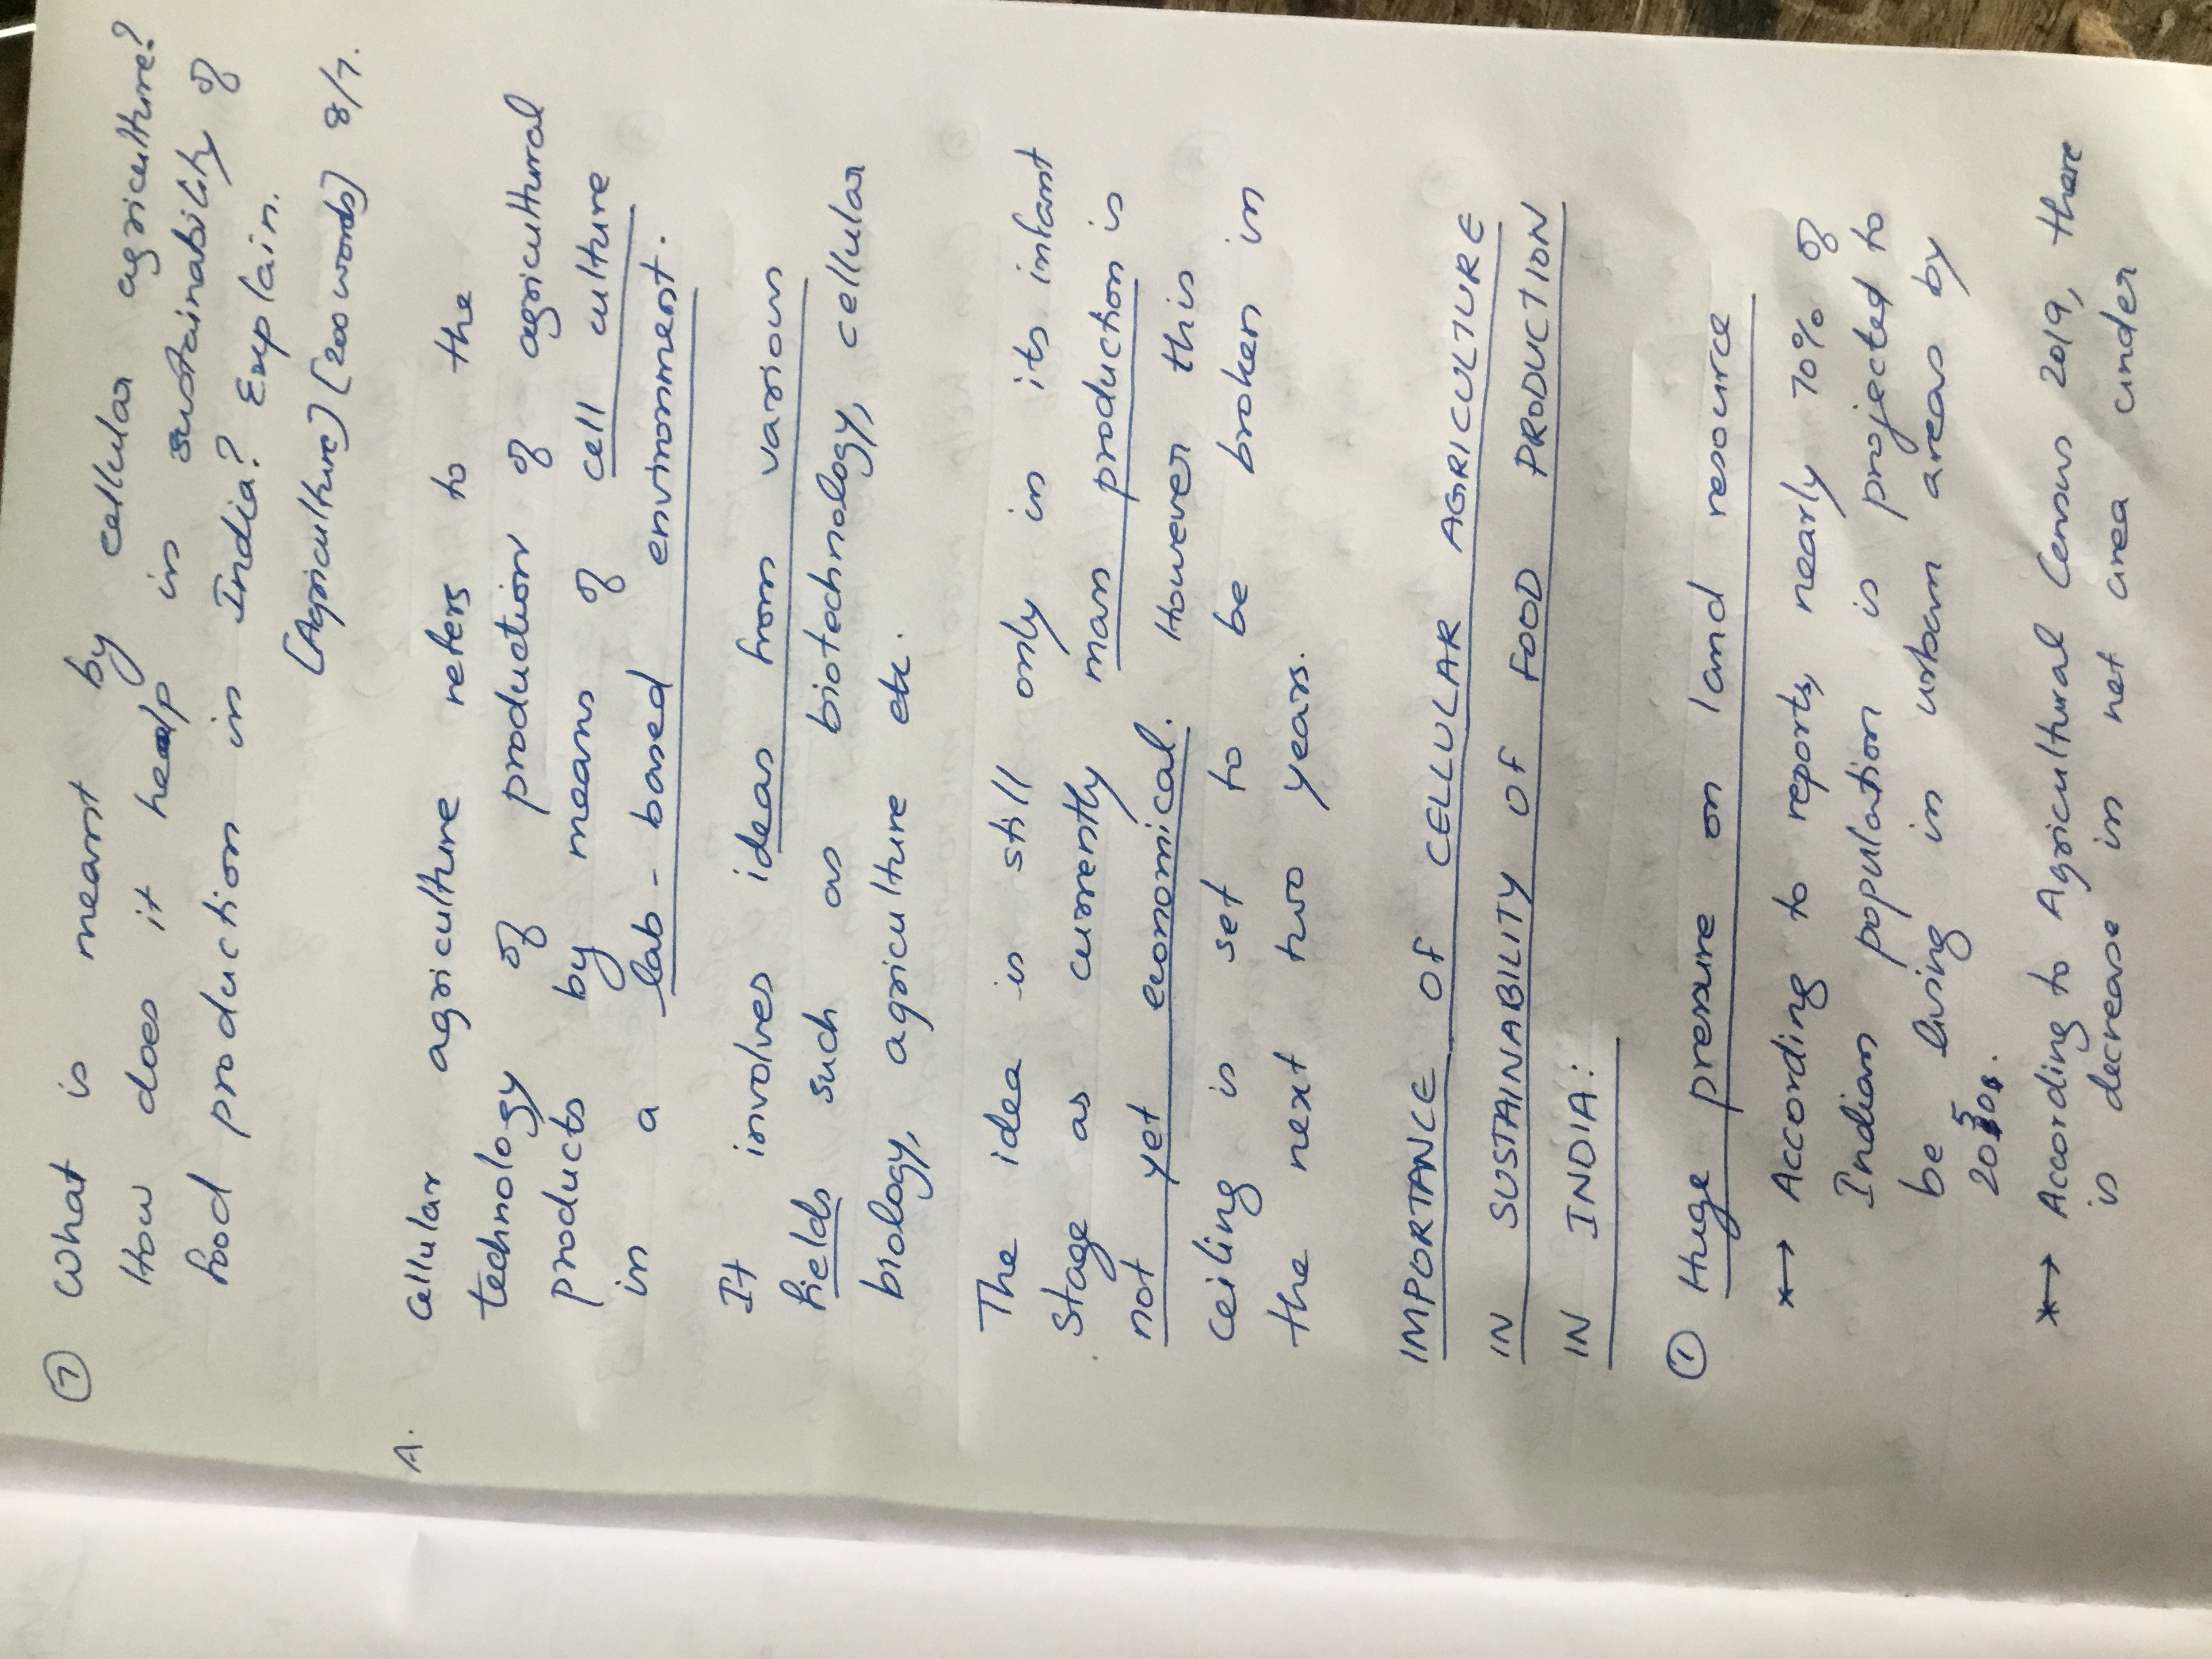 ⑦ What is meant by cellular agriculture?
How does it help in sustainability of
food production in India? Explain.
(Agriculture) (200 words) 8/7.
A. Cellular agriculture refers to the
technology of production of agricultural
products by means of cell culture
in a lab-based environment.
It involves ideas from various
fields such as biotechnology, cellular
biology, agriculture etc.
The idea is still only in its infant
stage as currently mass production is
not yet economical. However this
ceiling is set to be broken in
the next two years.
IMPORTANCE OF CELLULAR AGRICULTURE
IN SUSTAINABILITY OF FOOD PRODUCTION
IN INDIA:
① Huge pressure on land resource
*→ According to reports, nearly 70% of
Indian population is projected to
be living in urban areas by
2050.
*→ According to Agricultural Census 2019, there
is decrease in net area under